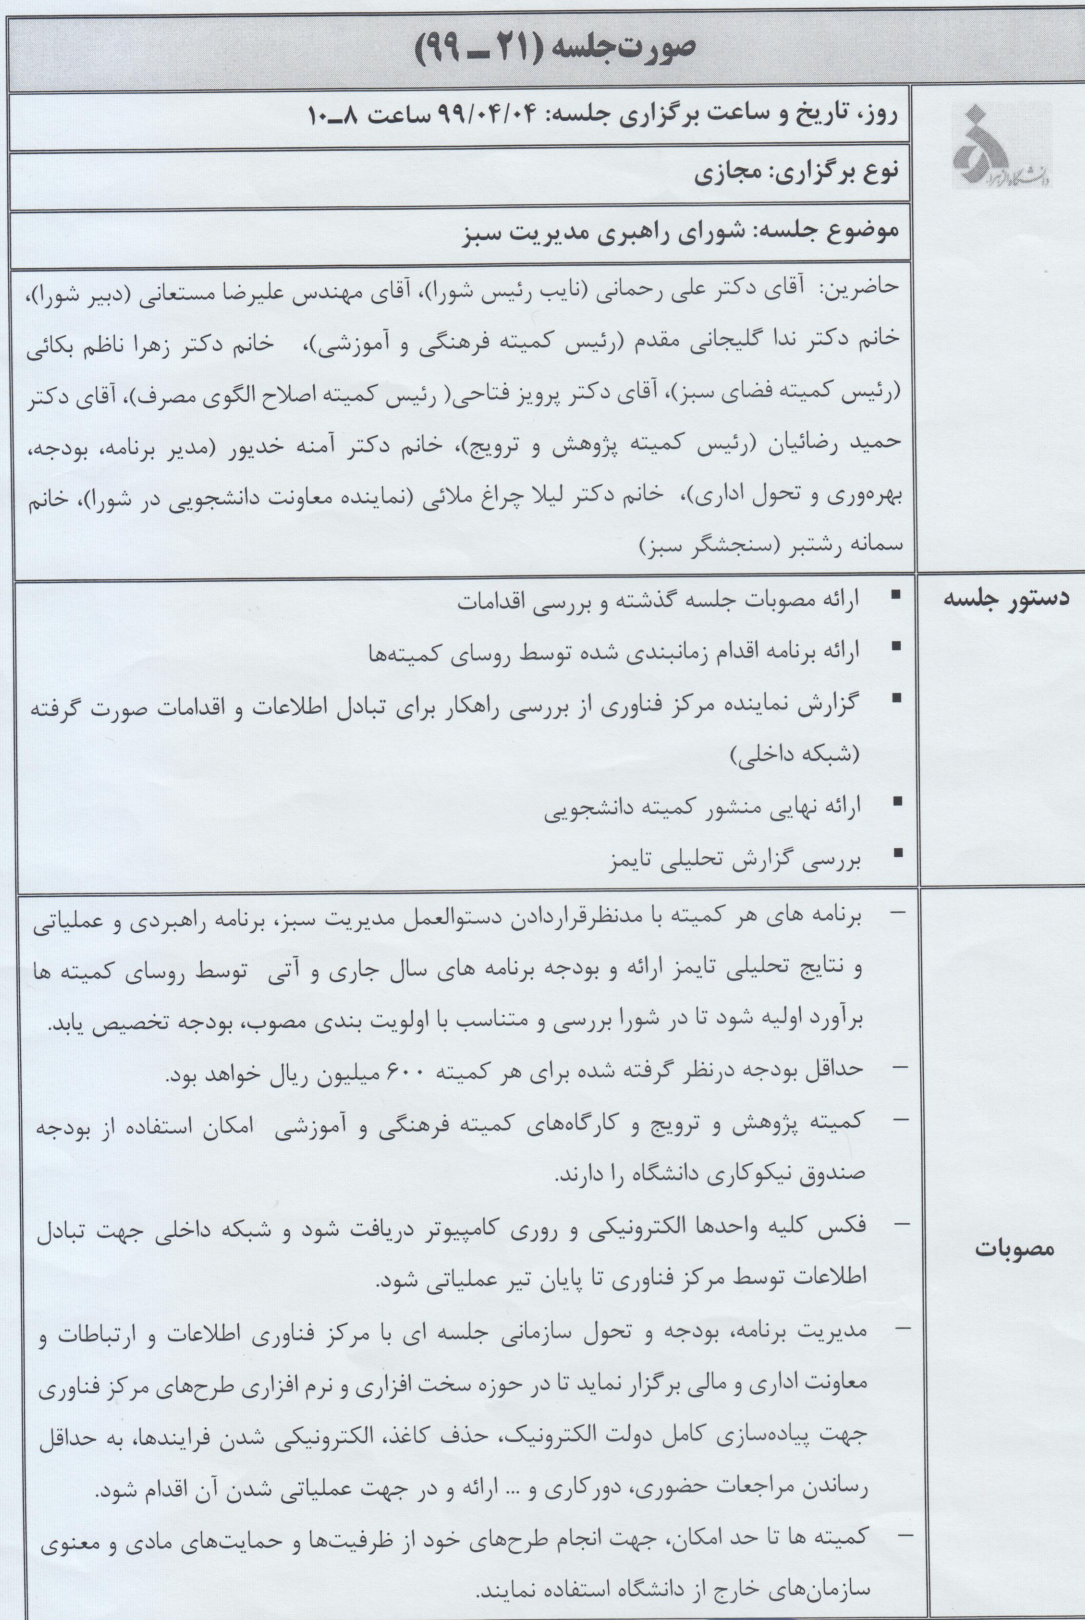 صورت‌جلسه (۲۱ ــ ۹۹)
دانشگاه الزهرا
روز، تاریخ و ساعت برگزاری جلسه: ۹۹/۰۴/۰۴ ساعت ۸ــ۱۰
نوع برگزاری: مجازی
موضوع جلسه: شورای راهبری مدیریت سبز
حاضرین: آقای دکتر علی رحمانی (نایب رئیس شورا)، آقای مهندس علیرضا مستعانی (دبیر شورا)،
خانم دکتر ندا گلیجانی مقدم (رئیس کمیته فرهنگی و آموزشی)، خانم دکتر زهرا ناظم بکائی
(رئیس کمیته فضای سبز)، آقای دکتر پرویز فتاحی( رئیس کمیته اصلاح الگوی مصرف)، آقای دکتر
حمید رضائیان (رئیس کمیته پژوهش و ترویج)، خانم دکتر آمنه خدیور (مدیر برنامه، بودجه،
بهره‌وری و تحول اداری)، خانم دکتر لیلا چراغ ملائی (نماینده معاونت دانشجویی در شورا)، خانم
سمانه رشتبر (سنجشگر سبز)
دستور جلسه
▪ ارائه مصوبات جلسه گذشته و بررسی اقدامات
▪ ارائه برنامه اقدام زمانبندی شده توسط روسای کمیته‌ها
▪ گزارش نماینده مرکز فناوری از بررسی راهکار برای تبادل اطلاعات و اقدامات صورت گرفته
(شبکه داخلی)
▪ ارائه نهایی منشور کمیته دانشجویی
▪ بررسی گزارش تحلیلی تایمز
مصوبات
– برنامه های هر کمیته با مدنظرقراردادن دستوالعمل مدیریت سبز، برنامه راهبردی و عملیاتی
و نتایج تحلیلی تایمز ارائه و بودجه برنامه های سال جاری و آتی توسط روسای کمیته ها
برآورد اولیه شود تا در شورا بررسی و متناسب با اولویت بندی مصوب، بودجه تخصیص یابد.
– حداقل بودجه درنظر گرفته شده برای هر کمیته ۶۰۰ میلیون ریال خواهد بود.
– کمیته پژوهش و ترویج و کارگاه‌های کمیته فرهنگی و آموزشی امکان استفاده از بودجه
صندوق نیکوکاری دانشگاه را دارند.
– فکس کلیه واحدها الکترونیکی و روری کامپیوتر دریافت شود و شبکه داخلی جهت تبادل
اطلاعات توسط مرکز فناوری تا پایان تیر عملیاتی شود.
– مدیریت برنامه، بودجه و تحول سازمانی جلسه ای با مرکز فناوری اطلاعات و ارتباطات و
معاونت اداری و مالی برگزار نماید تا در حوزه سخت افزاری و نرم افزاری طرح‌های مرکز فناوری
جهت پیاده‌سازی کامل دولت الکترونیک، حذف کاغذ، الکترونیکی شدن فرایندها، به حداقل
رساندن مراجعات حضوری، دورکاری و ... ارائه و در جهت عملیاتی شدن آن اقدام شود.
– کمیته ها تا حد امکان، جهت انجام طرح‌های خود از ظرفیت‌ها و حمایت‌های مادی و معنوی
سازمان‌های خارج از دانشگاه استفاده نمایند.